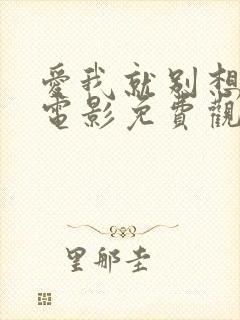 愛我就別想
電影免費觀
里那圭